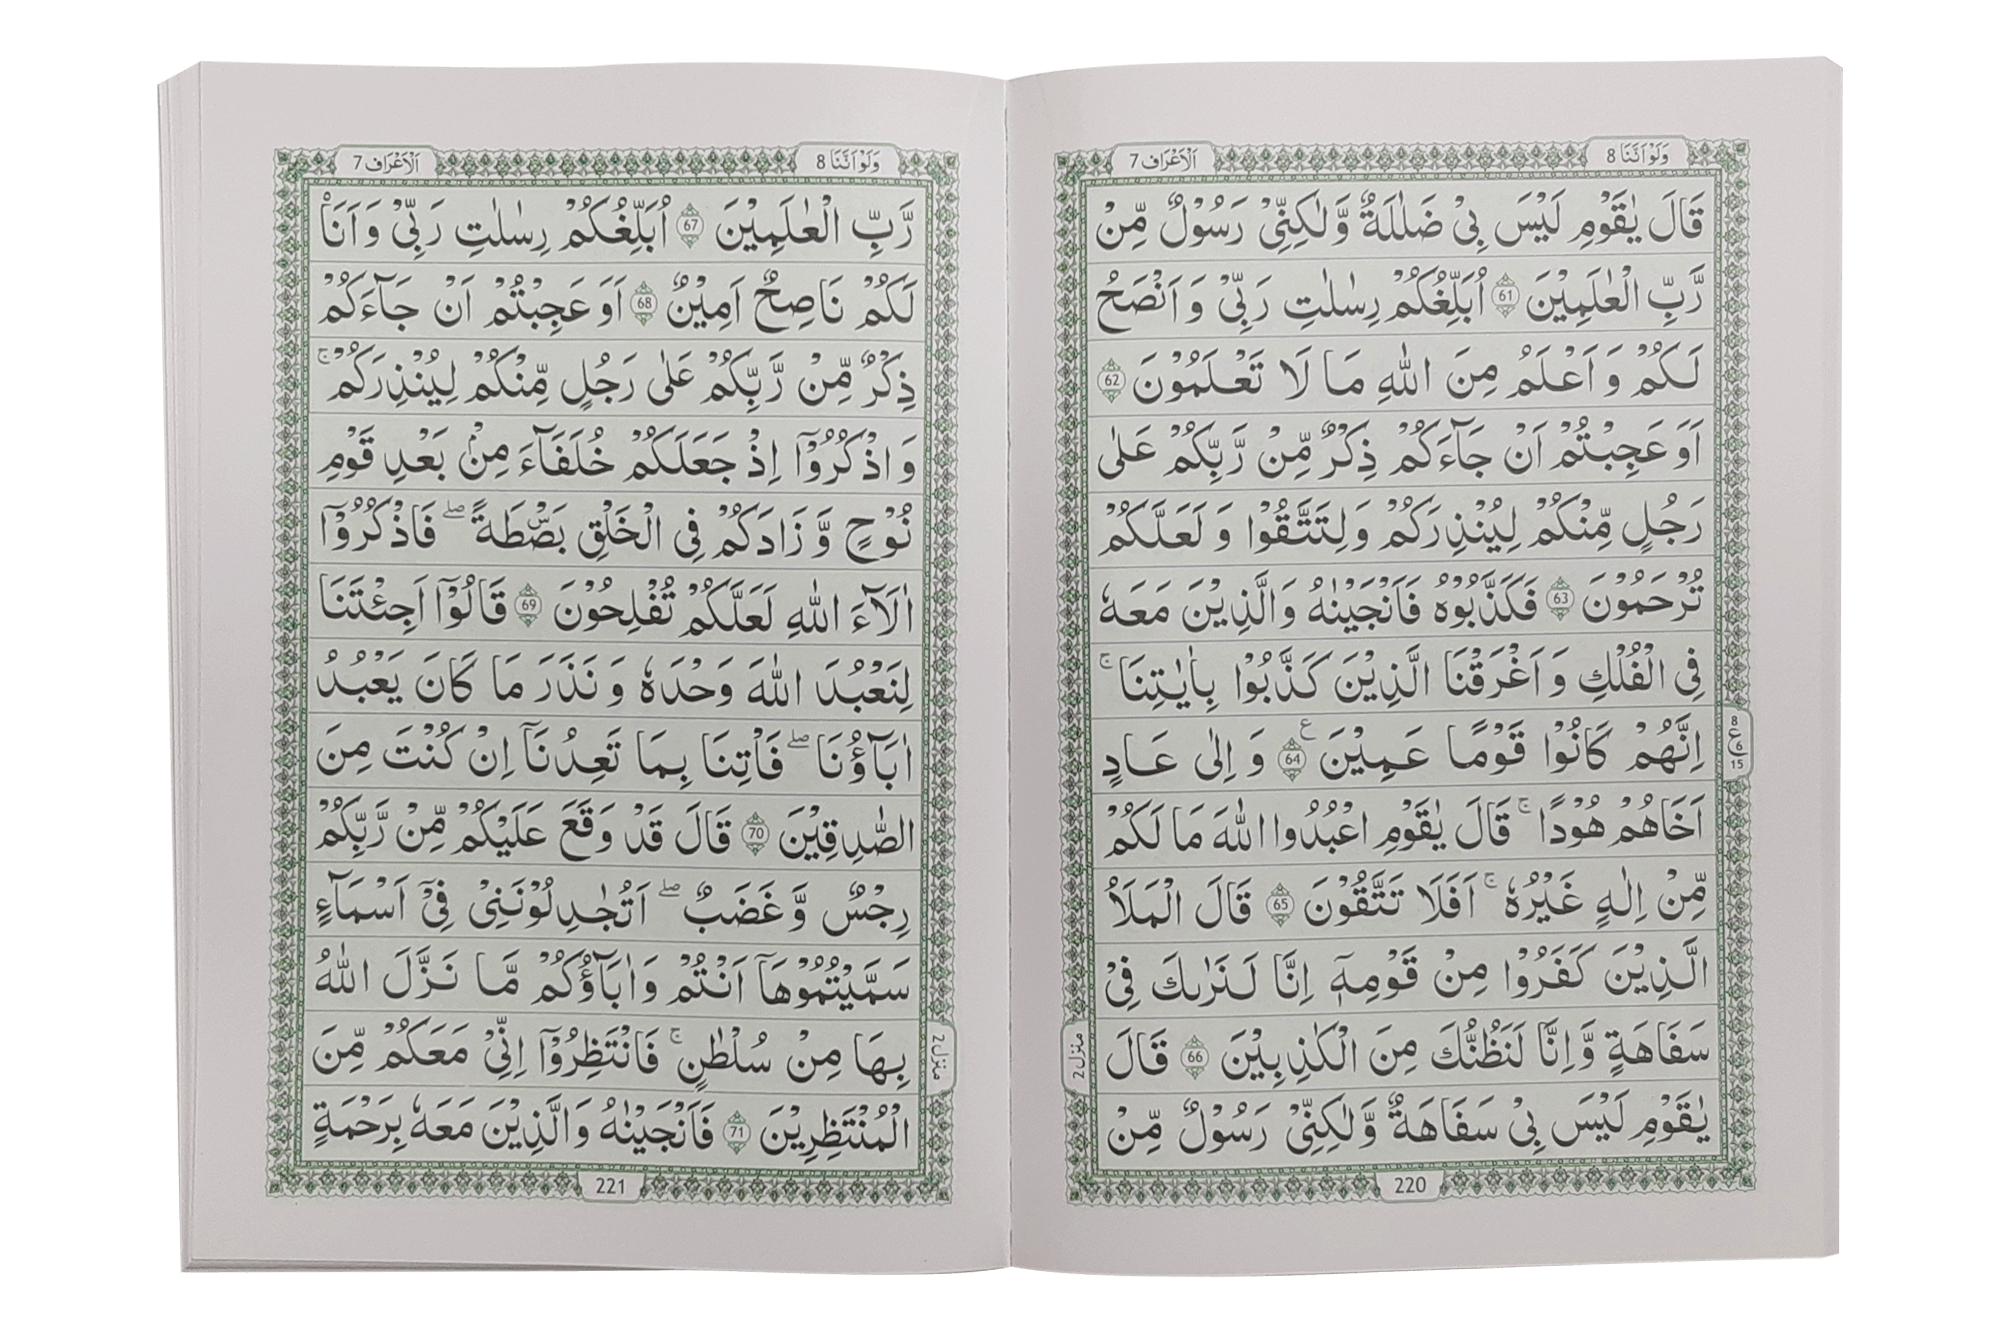 وَلَوْ اَنَّنَا 8
اَلْاَعْرَاف 7
قَالَ يٰقَوْمِ لَيْسَ بِيْ ضَلٰلَةٌ وَّلٰكِنِّيْ رَسُوْلٌ مِّنْ
رَّبِّ الْعٰلَمِيْنَ 61 اُبَلِّغُكُمْ رِسٰلٰتِ رَبِّيْ وَاَنْصَحُ
لَكُمْ وَاَعْلَمُ مِنَ اللّٰهِ مَا لَا تَعْلَمُوْنَ 62
اَوَعَجِبْتُمْ اَنْ جَآءَكُمْ ذِكْرٌ مِّنْ رَّبِّكُمْ عَلٰى
رَجُلٍ مِّنْكُمْ لِيُنْذِرَكُمْ وَلِتَتَّقُوْا وَلَعَلَّكُمْ
تُرْحَمُوْنَ 63 فَكَذَّبُوْهُ فَاَنْجَيْنٰهُ وَالَّذِيْنَ مَعَهٗ
فِي الْفُلْكِ وَاَغْرَقْنَا الَّذِيْنَ كَذَّبُوْا بِاٰيٰتِنَا ۚ
اِنَّهُمْ كَانُوْا قَوْمًا عَمِيْنَ 64 ع وَاِلٰى عَادٍ
8 ع 6 15
اَخَاهُمْ هُوْدًا ۚ قَالَ يٰقَوْمِ اعْبُدُوا اللّٰهَ مَا لَكُمْ
مِّنْ اِلٰهٍ غَيْرُهٗ ۚ اَفَلَا تَتَّقُوْنَ 65 قَالَ الْمَلَاُ
الَّذِيْنَ كَفَرُوْا مِنْ قَوْمِهٖٓ اِنَّا لَنَرٰىكَ فِيْ
سَفَاهَةٍ وَّاِنَّا لَنَظُنُّكَ مِنَ الْكٰذِبِيْنَ 66 قَالَ
يٰقَوْمِ لَيْسَ بِيْ سَفَاهَةٌ وَّلٰكِنِّيْ رَسُوْلٌ مِّنْ
منزل 2
220
وَلَوْ اَنَّنَا 8
اَلْاَعْرَاف 7
رَّبِّ الْعٰلَمِيْنَ 67 اُبَلِّغُكُمْ رِسٰلٰتِ رَبِّيْ وَاَنَا۠
لَكُمْ نَاصِحٌ اَمِيْنٌ 68 اَوَعَجِبْتُمْ اَنْ جَآءَكُمْ
ذِكْرٌ مِّنْ رَّبِّكُمْ عَلٰى رَجُلٍ مِّنْكُمْ لِيُنْذِرَكُمْ ۚ
وَاذْكُرُوْٓا اِذْ جَعَلَكُمْ خُلَفَآءَ مِنْۢ بَعْدِ قَوْمِ
نُوْحٍ وَّزَادَكُمْ فِي الْخَلْقِ بَصْۜطَةً ۖ فَاذْكُرُوْٓا
اٰلَآءَ اللّٰهِ لَعَلَّكُمْ تُفْلِحُوْنَ 69 قَالُوْٓا اَجِئْتَنَا
لِنَعْبُدَ اللّٰهَ وَحْدَهٗ وَنَذَرَ مَا كَانَ يَعْبُدُ
اٰبَآؤُنَا ۖ فَاْتِنَا بِمَا تَعِدُنَآ اِنْ كُنْتَ مِنَ
الصّٰدِقِيْنَ 70 قَالَ قَدْ وَقَعَ عَلَيْكُمْ مِّنْ رَّبِّكُمْ
رِجْسٌ وَّغَضَبٌ ۖ اَتُجَادِلُوْنَنِيْ فِيْٓ اَسْمَآءٍ
سَمَّيْتُمُوْهَآ اَنْتُمْ وَاٰبَآؤُكُمْ مَّا نَزَّلَ اللّٰهُ
بِهَا مِنْ سُلْطٰنٍ ۚ فَانْتَظِرُوْٓا اِنِّيْ مَعَكُمْ مِّنَ
الْمُنْتَظِرِيْنَ 71 فَاَنْجَيْنٰهُ وَالَّذِيْنَ مَعَهٗ بِرَحْمَةٍ
منزل 2
221